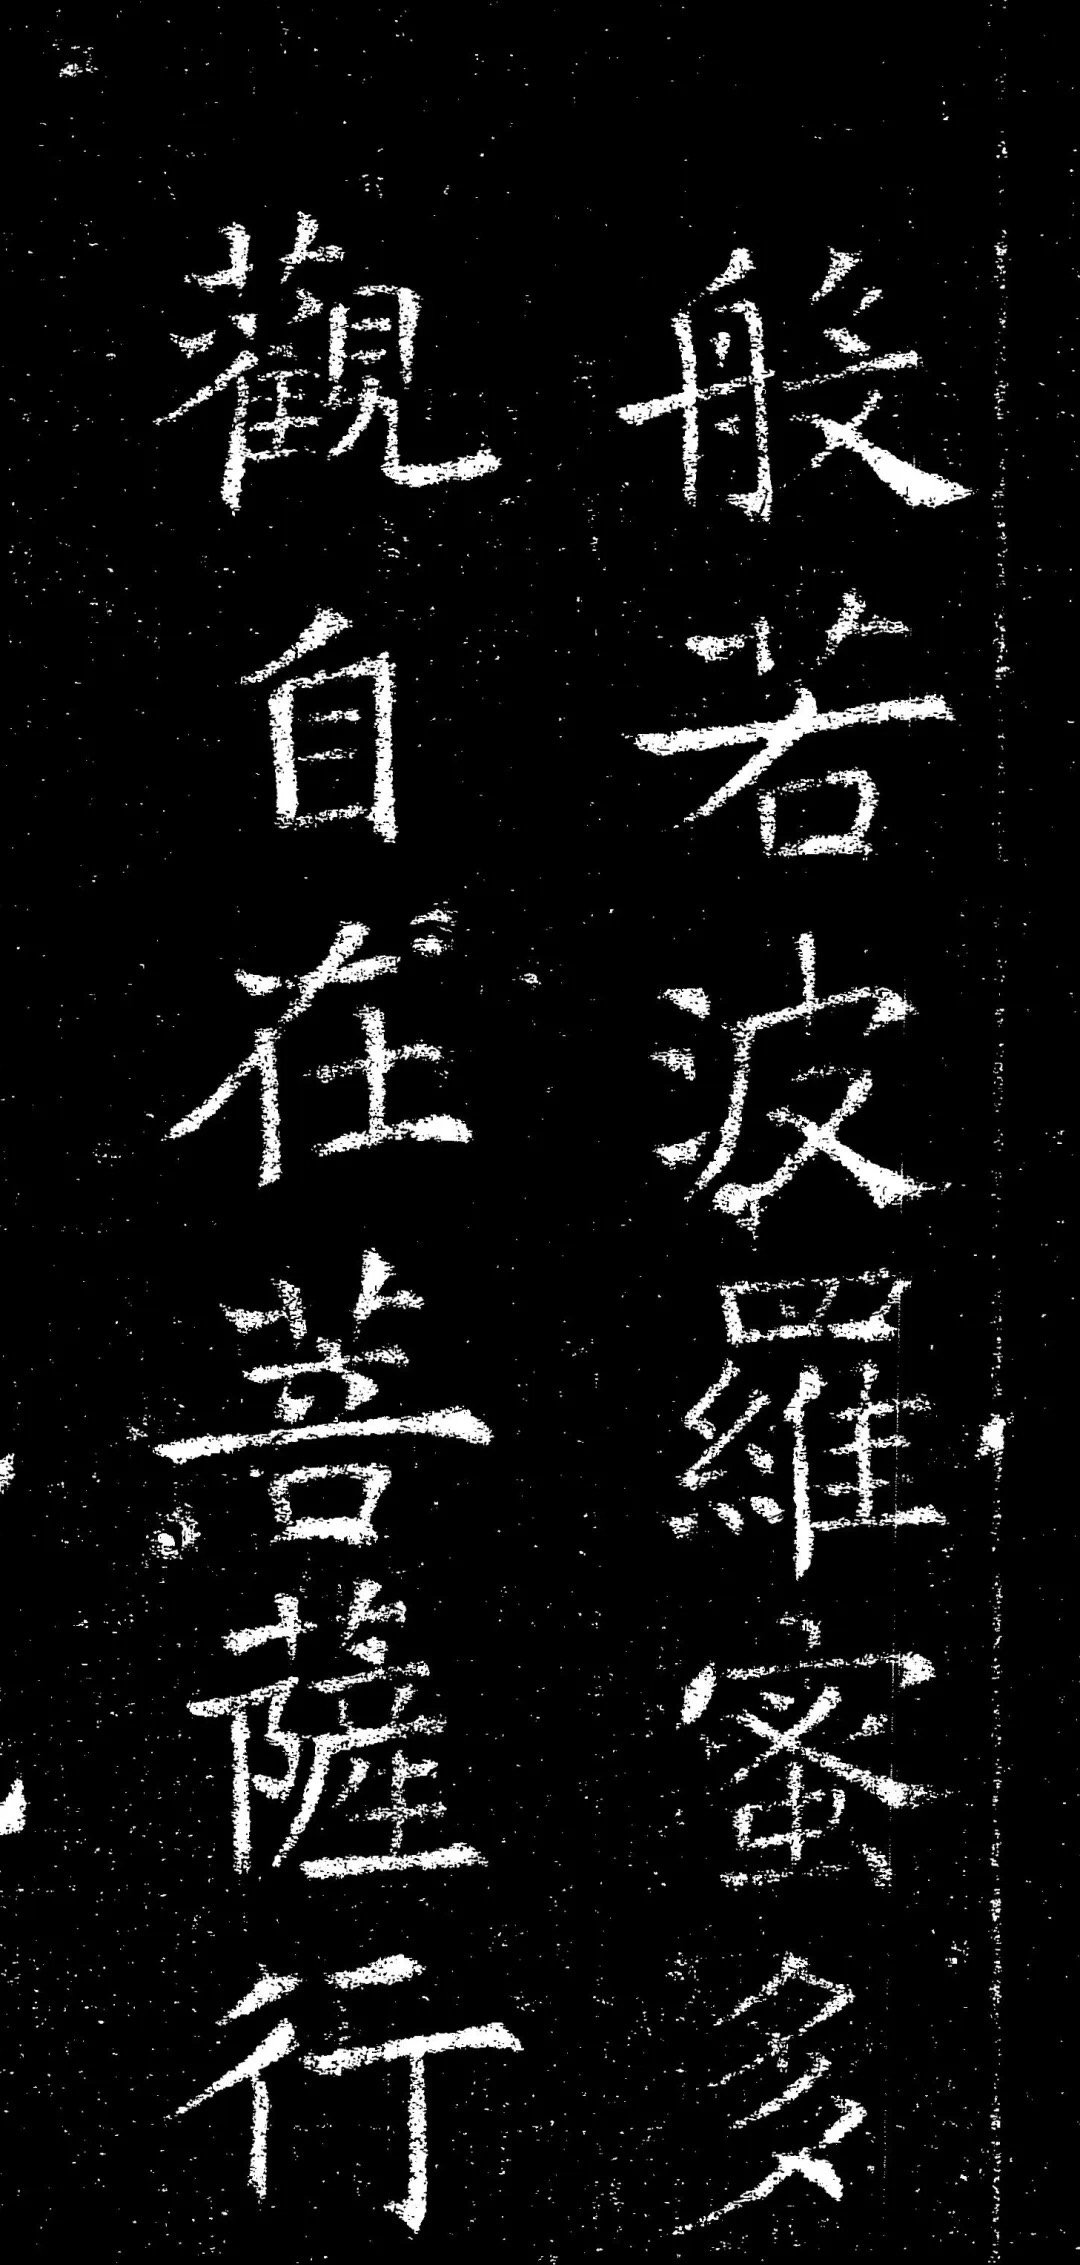 般若波羅蜜多
觀自在菩薩行